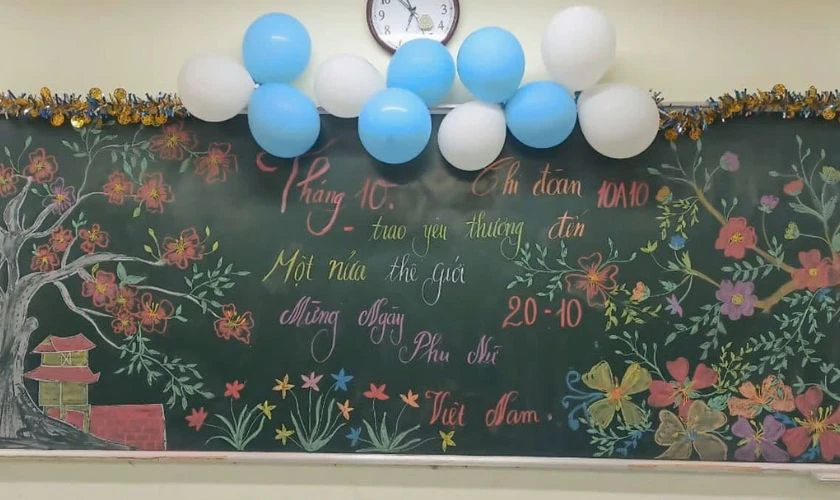 Tháng 10.
Chi đoàn 10A10
- trao yêu thương đến
Một nửa thế giới
Mừng Ngày 20-10
Phụ Nữ
Việt Nam.